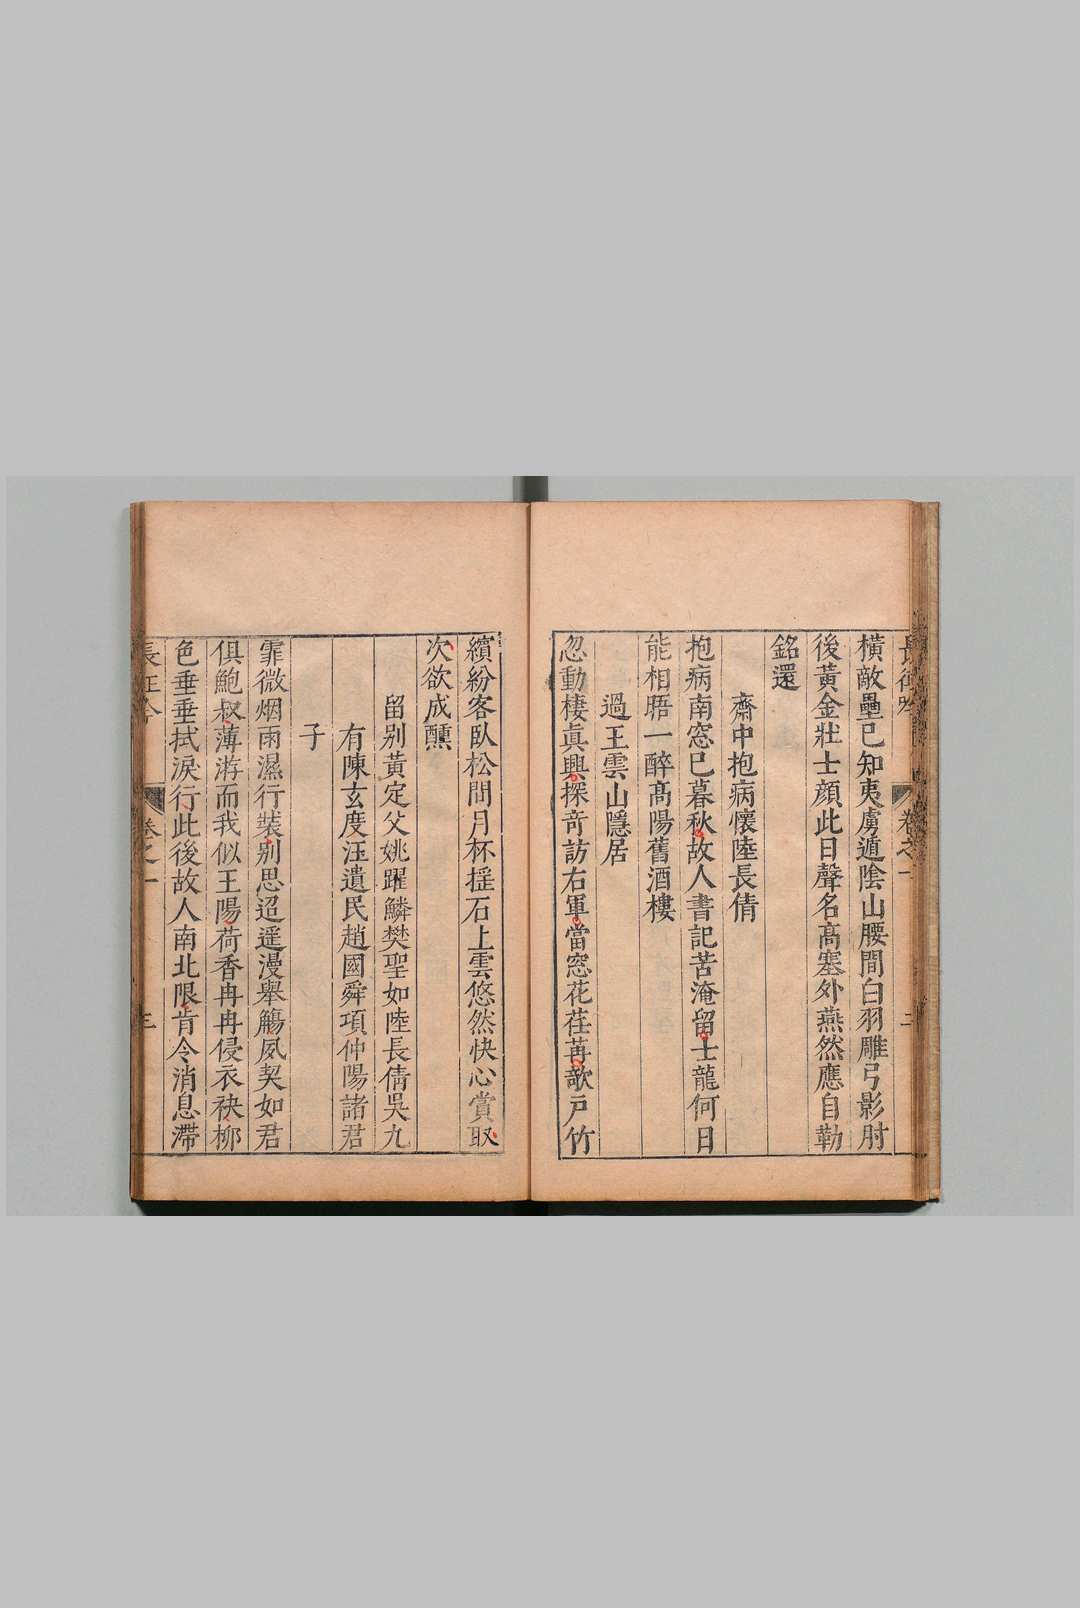 橫敵壘已知夷虜遁陰山腰間白羽雕弓影肘
後黃金壯士顔此日聲名高塞外燕然應自勒
銘還
齋中抱病懷陸長倩
抱病南窓已暮秋故人書記苦淹留士龍何日
能相晤一醉髙陽舊酒樓
過王雲山隱居
忽動棲眞興探奇訪右軍當窓花荏苒歌戸竹
繽紛客臥松間月杯揺石上雲悠然快心賞取
次欲成醺
留别黃定父姚躍鱗樊聖如陸長倩吳九
有陳玄度汪遺民趙國舜項仲陽諸君
子
霏微烟雨濕行裝别思迢遥漫舉觴夙契如君
俱鮑叔薄游而我似王陽荷香冉冉侵衣袂柳
色垂垂拭淚行此後故人南北限肯令消息滯
卷之一
三